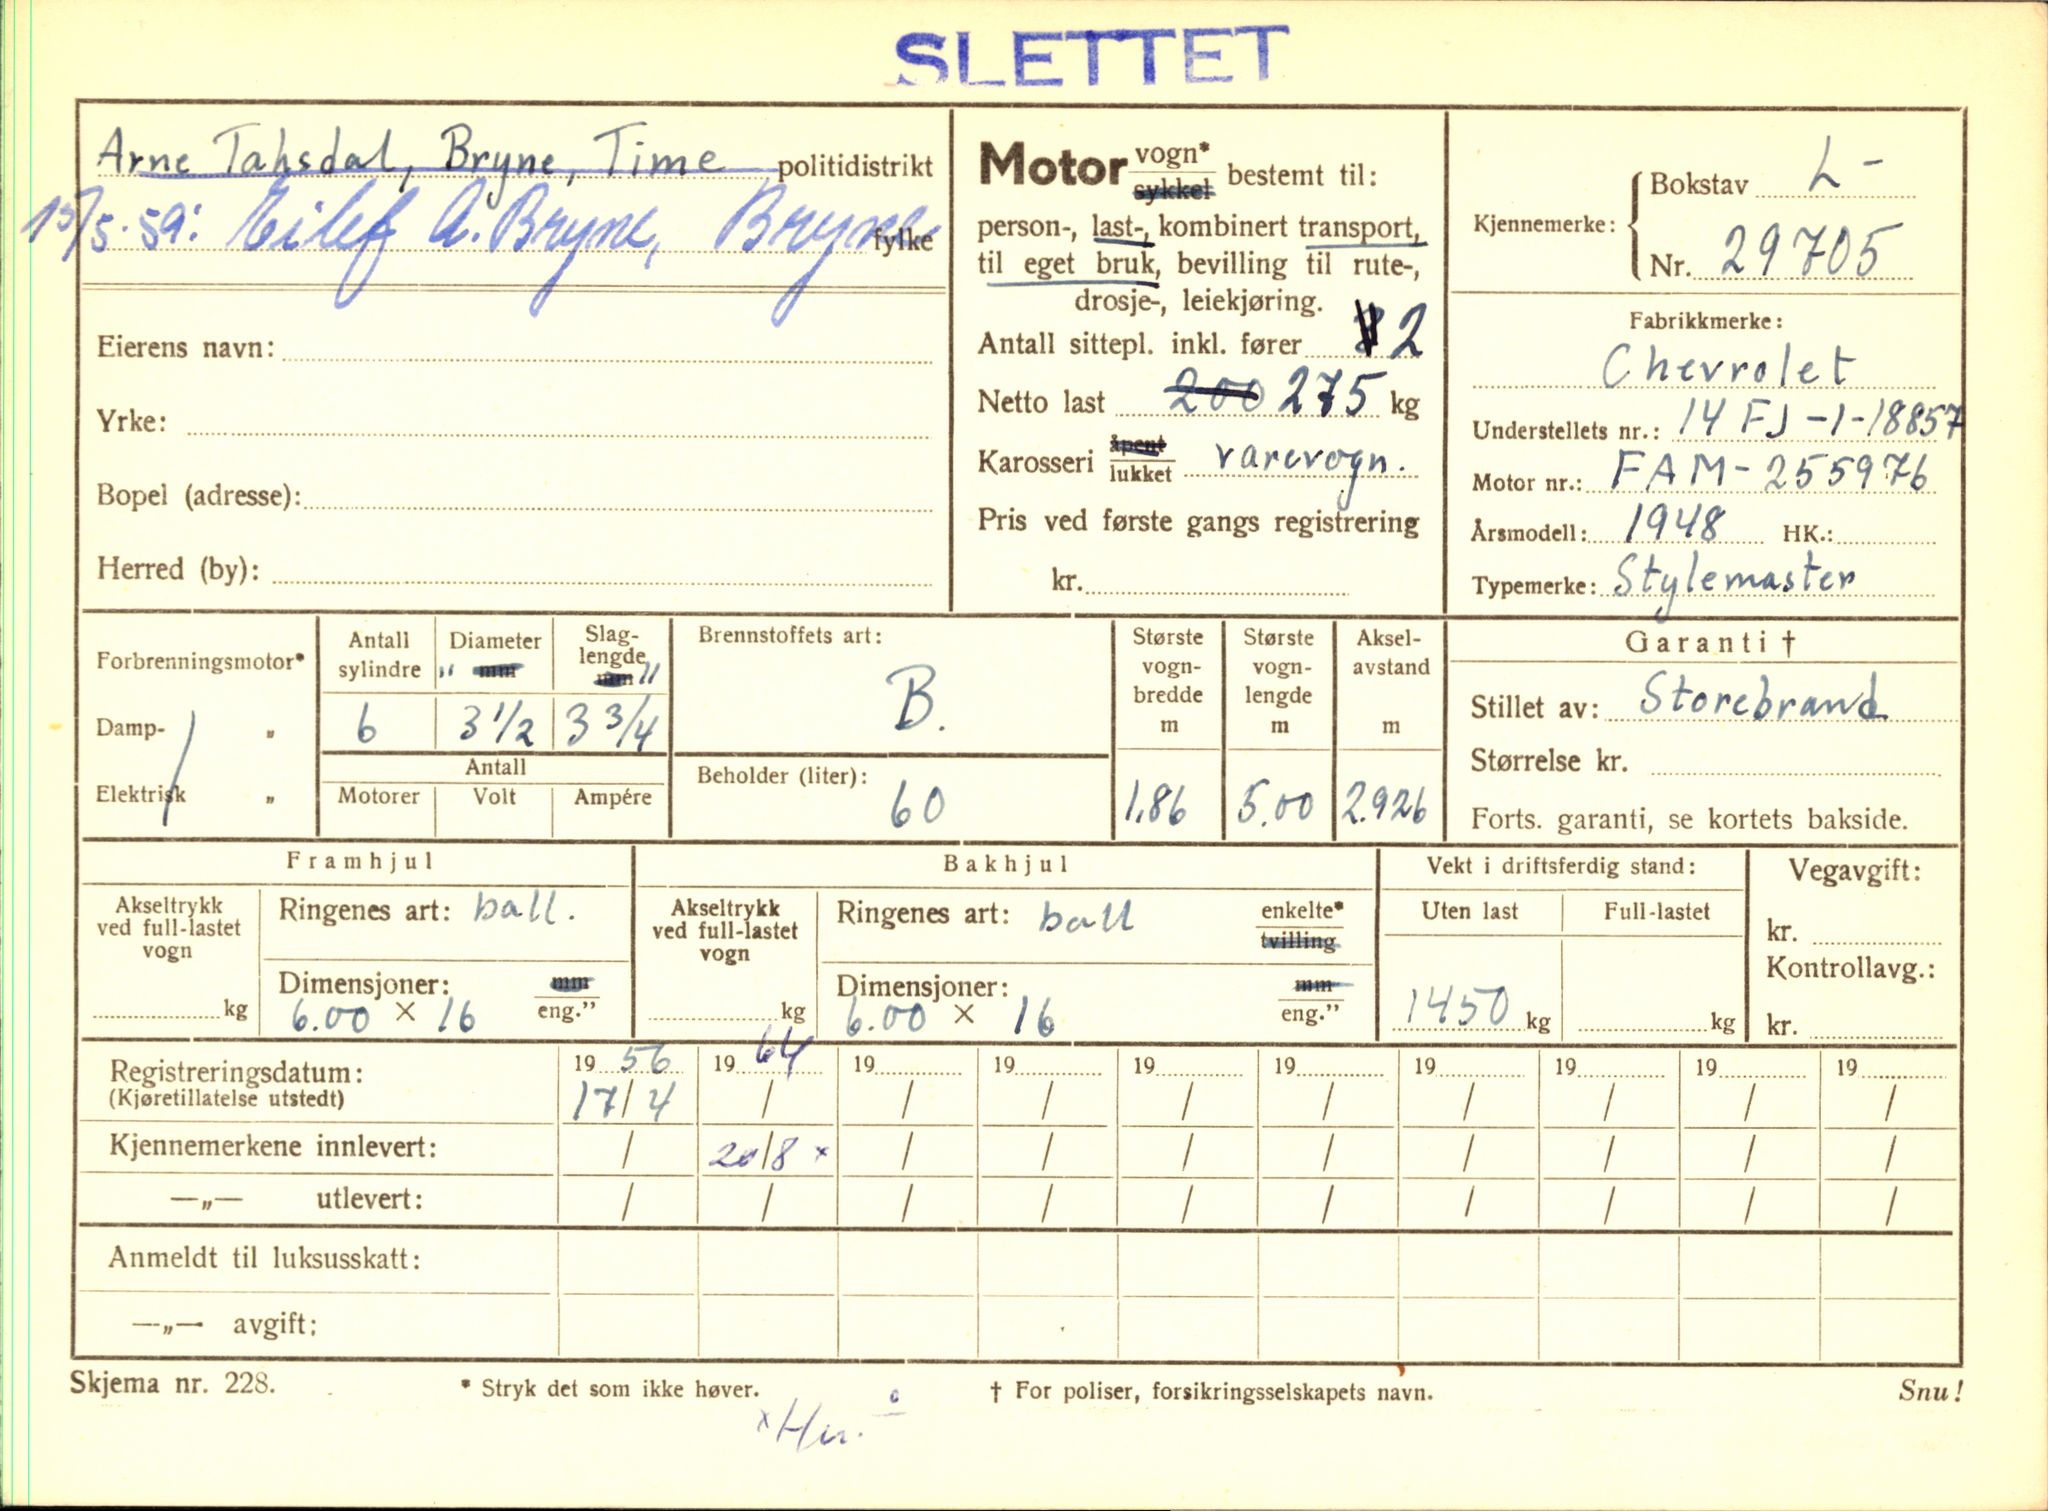 SLETTET
Arne Tahsdal, Bryne, Time politidistrikt
15/5-59: Eilef A. Bryne, Bryne fylke
Eierens navn:
Yrke:
Bopel (adresse):
Herred (by):
Motor vogn* sykkel bestemt til:
person-, last-, kombinert transport,
til eget bruk, bevilling til rute-,
drosje-, leiekjøring.
Antall sittepl. inkl. fører 2
Netto last 200 275 kg
Karosseri åpent lukket varevogn.
Pris ved første gangs registrering
kr.
Kjennemerke: Bokstav L-
Nr. 29705
Fabrikkmerke:
Chevrolet
Understellets nr.: 14 FJ-1-18857
Motor nr.: FAM-255976
Årsmodell: 1948 HK.:
Typemerke: Stylemaster
Forbrenningsmotor*
Damp- "
Elektrisk "
Antall sylindre
6
Diameter " mm
3 1/2
Slag-lengde mm "
3 3/4
Antall
Motorer Volt Ampére
Brennstoffets art:
B.
Beholder (liter):
60
Største vogn-bredde m
1.86
Største vogn-lengde m
5.00
Aksel-avstand m
2.926
Garanti †
Stillet av: Storebrand
Størrelse kr.
Forts. garanti, se kortets bakside.
Framhjul
Akseltrykk ved full-lastet vogn
kg
Ringenes art: ball.
Dimensjoner: mm eng."
6.00 × 16
Bakhjul
Akseltrykk ved full-lastet vogn
kg
Ringenes art: ball enkelte* tvilling
Dimensjoner: mm eng."
6.00 × 16
Vekt i driftsferdig stand:
Uten last Full-lastet
1450 kg kg
Vegavgift:
kr.
Kontrollavg.:
kr.
Registreringsdatum: 19 56 19 64 19 19 19 19 19 19 19 19
(Kjøretillatelse utstedt) 17/4 / / / / / / / / /
Kjennemerkene innlevert: / 20/8 × / / / / / / / /
—„— utlevert: / / / / / / / / / /
Anmeldt til luksusskatt:
—„— avgift:
Skjema nr. 228.
* Stryk det som ikke høver.
† For poliser, forsikringsselskapets navn.
Snu!